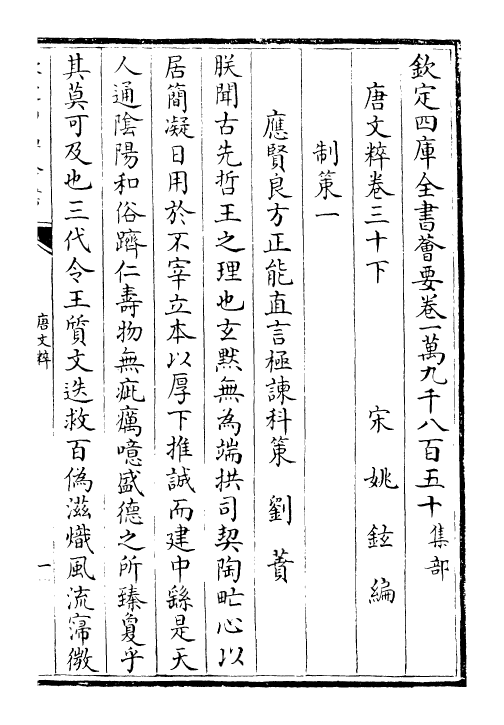 欽定四庫全書薈要卷一萬九千八百五十集部
唐文粹卷三十下
宋姚鉉編
制策一
應賢良方正能直言極諫科策 劉蕡
朕聞古先哲王之理也玄默無為端拱司契陶甿心以
居簡凝日用於不宰立本以厚下推誠而建中繇是天
人通陰陽和俗躋仁壽物無疵癘噫盛德之所臻夐乎
其莫可及也三代令王質文迭救百偽滋熾風流寖微
唐文粹
一